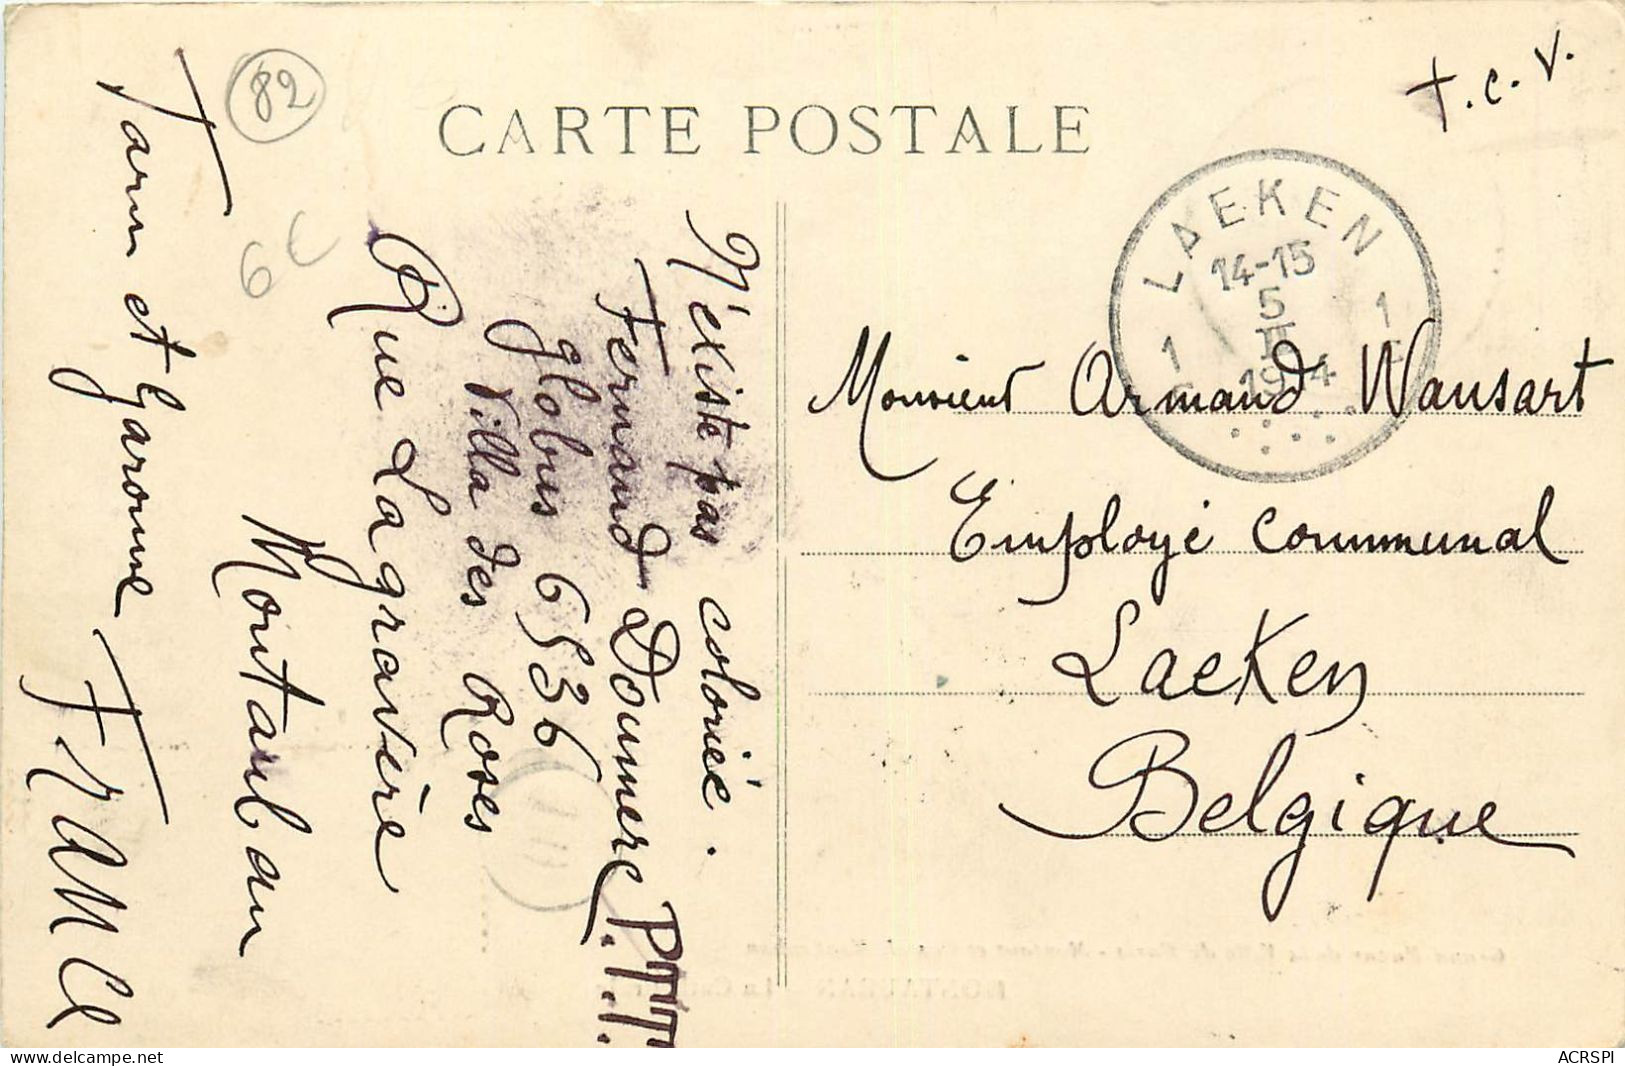 82
6 €
CARTE POSTALE
T.C.V.
LAEKEN
14-15
5
II
1914
1 1
N'existe pas coloriée.
Fernand Doumerc P.T.T.
globus 6536
Villa des Roses
Rue Lagravère
Montauban
Tarn et Garonne
FRANCE
Monsieur Armand Wansart
Employé communal
Laeken
Belgique
ACRSPI